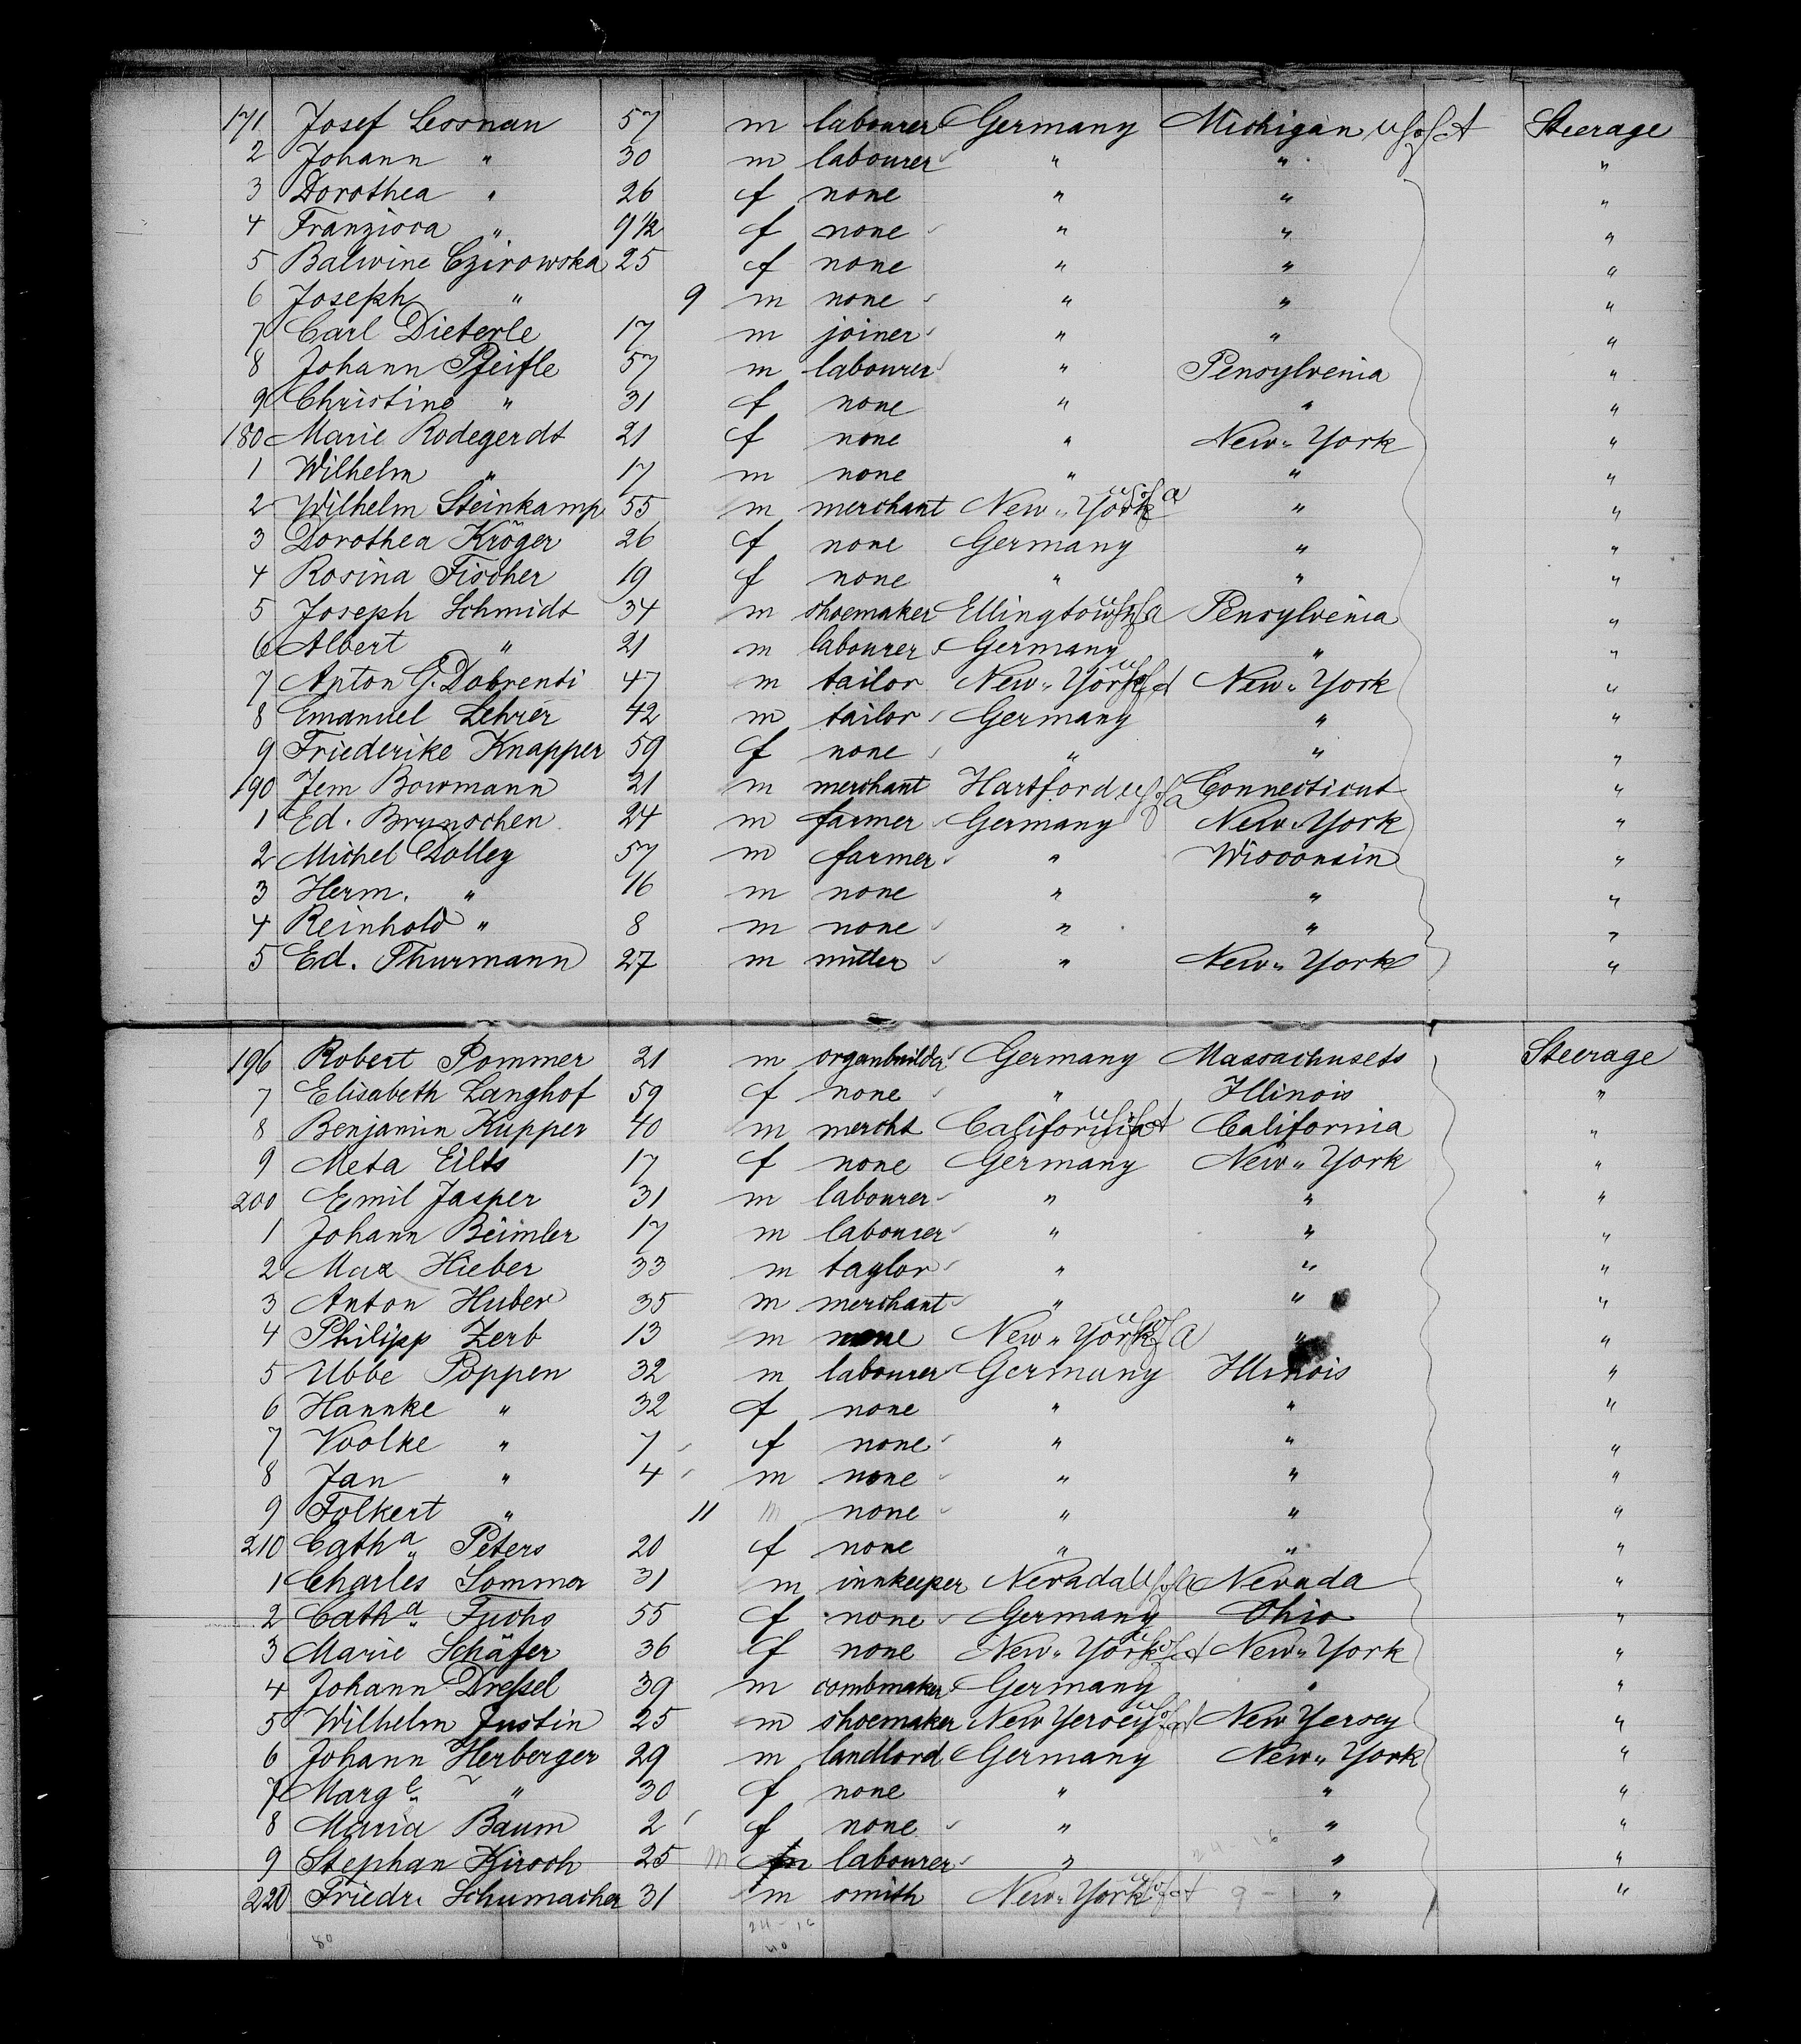 171 Josef Lessnau 57 m labourer Germany Michigan U S of A Steerage
2 Johann " 30 m labourer " " "
3 Dorothea " 26 f none " " "
4 Franzisca " 9 1/2 f none " " "
5 Balwine Czirowska 25 f none " " "
6 Joseph " 9 m none " " "
7 Carl Dieterle 17 m joiner " " "
8 Johann Pfeifle 57 m labourer " Pensylvenia "
9 Christine " 31 f none " " "
180 Marie Rodegerdt 21 f none " New-York "
1 Wilhelm " 17 m none " " "
2 Wilhelm Steinkamp 55 m merchant New-York U S of A " "
3 Dorothea Kröger 26 f none Germany " "
4 Rosina Fischer 19 f none " " "
5 Joseph Schmidt 34 m shoemaker Ellingtown U S of A Pensylvenia "
6 Albert " 21 m labourer Germany " "
7 Anton G. Dobrenti 47 m tailor New-York U S of A New-York "
8 Emanuel Lehrer 42 m tailor Germany " "
9 Friederike Knapper 59 f none " " "
190 Jem Bowmann 21 m merchant Hartford U S of A Connecticut "
1 Ed. Brunschen 24 m farmer Germany New-York "
2 Michel Dolley 57 m farmer " Wisconsin "
3 Herm. " 16 m none " " "
4 Reinhold " 8 m none " " "
5 Ed. Thurmann 27 m miller " New-York "
196 Robert Pommer 21 m organbuilder Germany Massachusets Steerage
7 Elisabeth Langhof 59 f none " Illinois "
8 Benjamin Kupper 40 m mercht California U S of A California "
9 Meta Eilts 17 f none Germany New-York "
200 Emil Jasper 31 m labourer " " "
1 Johann Beimler 17 m labourer " " "
2 Max Hieber 33 m taylor " " "
3 Anton Huber 35 m merchant " " "
4 Philipp Zerb 13 m none New-York U S of A " "
5 Ubbe Poppen 32 m labourer Germany Illinois "
6 Hannke " 32 f none " " "
7 Voolke " 7 f none " " "
8 Jan " 4 m none " " "
9 Folkert " 11 m none " " "
210 Catha Peters 20 f none " " "
1 Charles Sommer 31 m innkeeper Nevada U S of A Nevada "
2 Catha Fuchs 55 f none Germany Ohio "
3 Marie Schäfer 36 f none New-York U S of A New-York "
4 Johann Dreßel 39 m combmaker Germany " "
5 Wilhelm Justin 25 m shoemaker New Yersey U S of A New Yersey "
6 Johann Herberger 29 m landlord Germany New-York "
7 Marge " 30 f none " " "
8 Maria Baum 2 f none " " "
9 Stephan Kirsch 25 m labourer " " "
220 Friedr. Schumacher 31 m smith New-York U S of A 9 - "
80 24-16
40